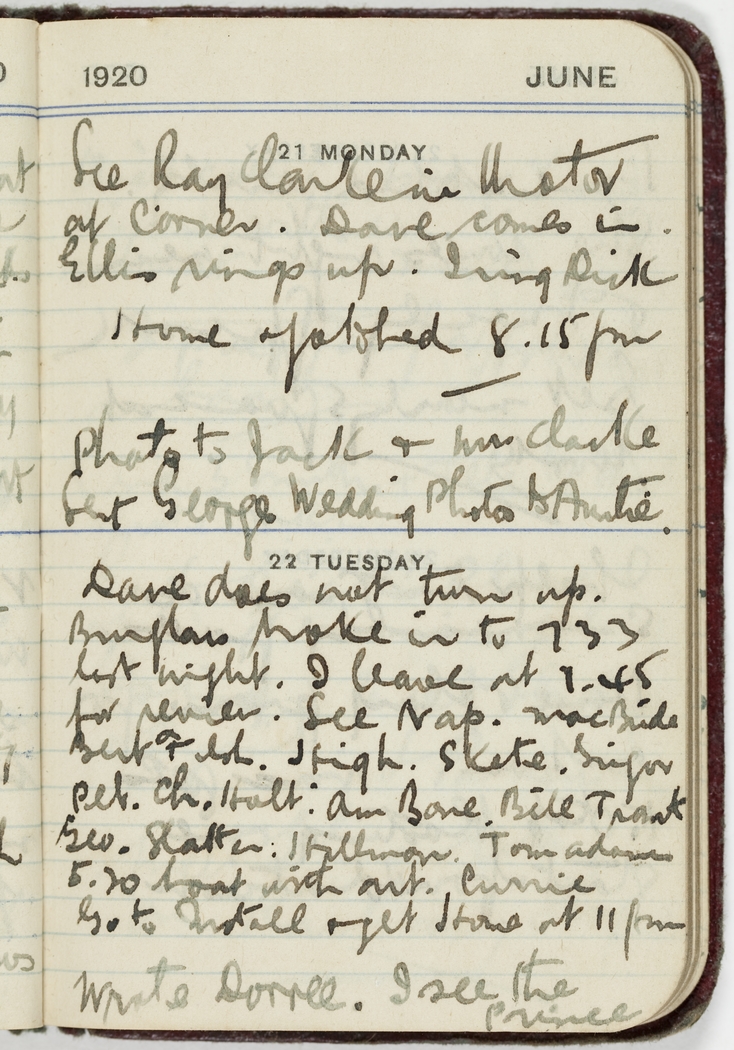 1920 JUNE
21 MONDAY
See Ray Clarke in Motor
at Corner. Dave comes in.
Ellis rings up. I ring Dick
Home 8.15 pm
Photo to Jack & Mrs Clarke
Sent George Wedding Photos to Auntie.
22 TUESDAY
Dave does not turn up.
Burglars broke in to 733
last night. I leave at 1.45
for review. See Nap. MacBride
Bert High. Skete.
Pet. Ch. Holt: Am Bone. Bill Trout
Geo. Slatter. Hillman. Tom Adams
5.30 boat with art. Currie
Go to Install & get Home at 11 pm
Write Dorree. I see the
prince